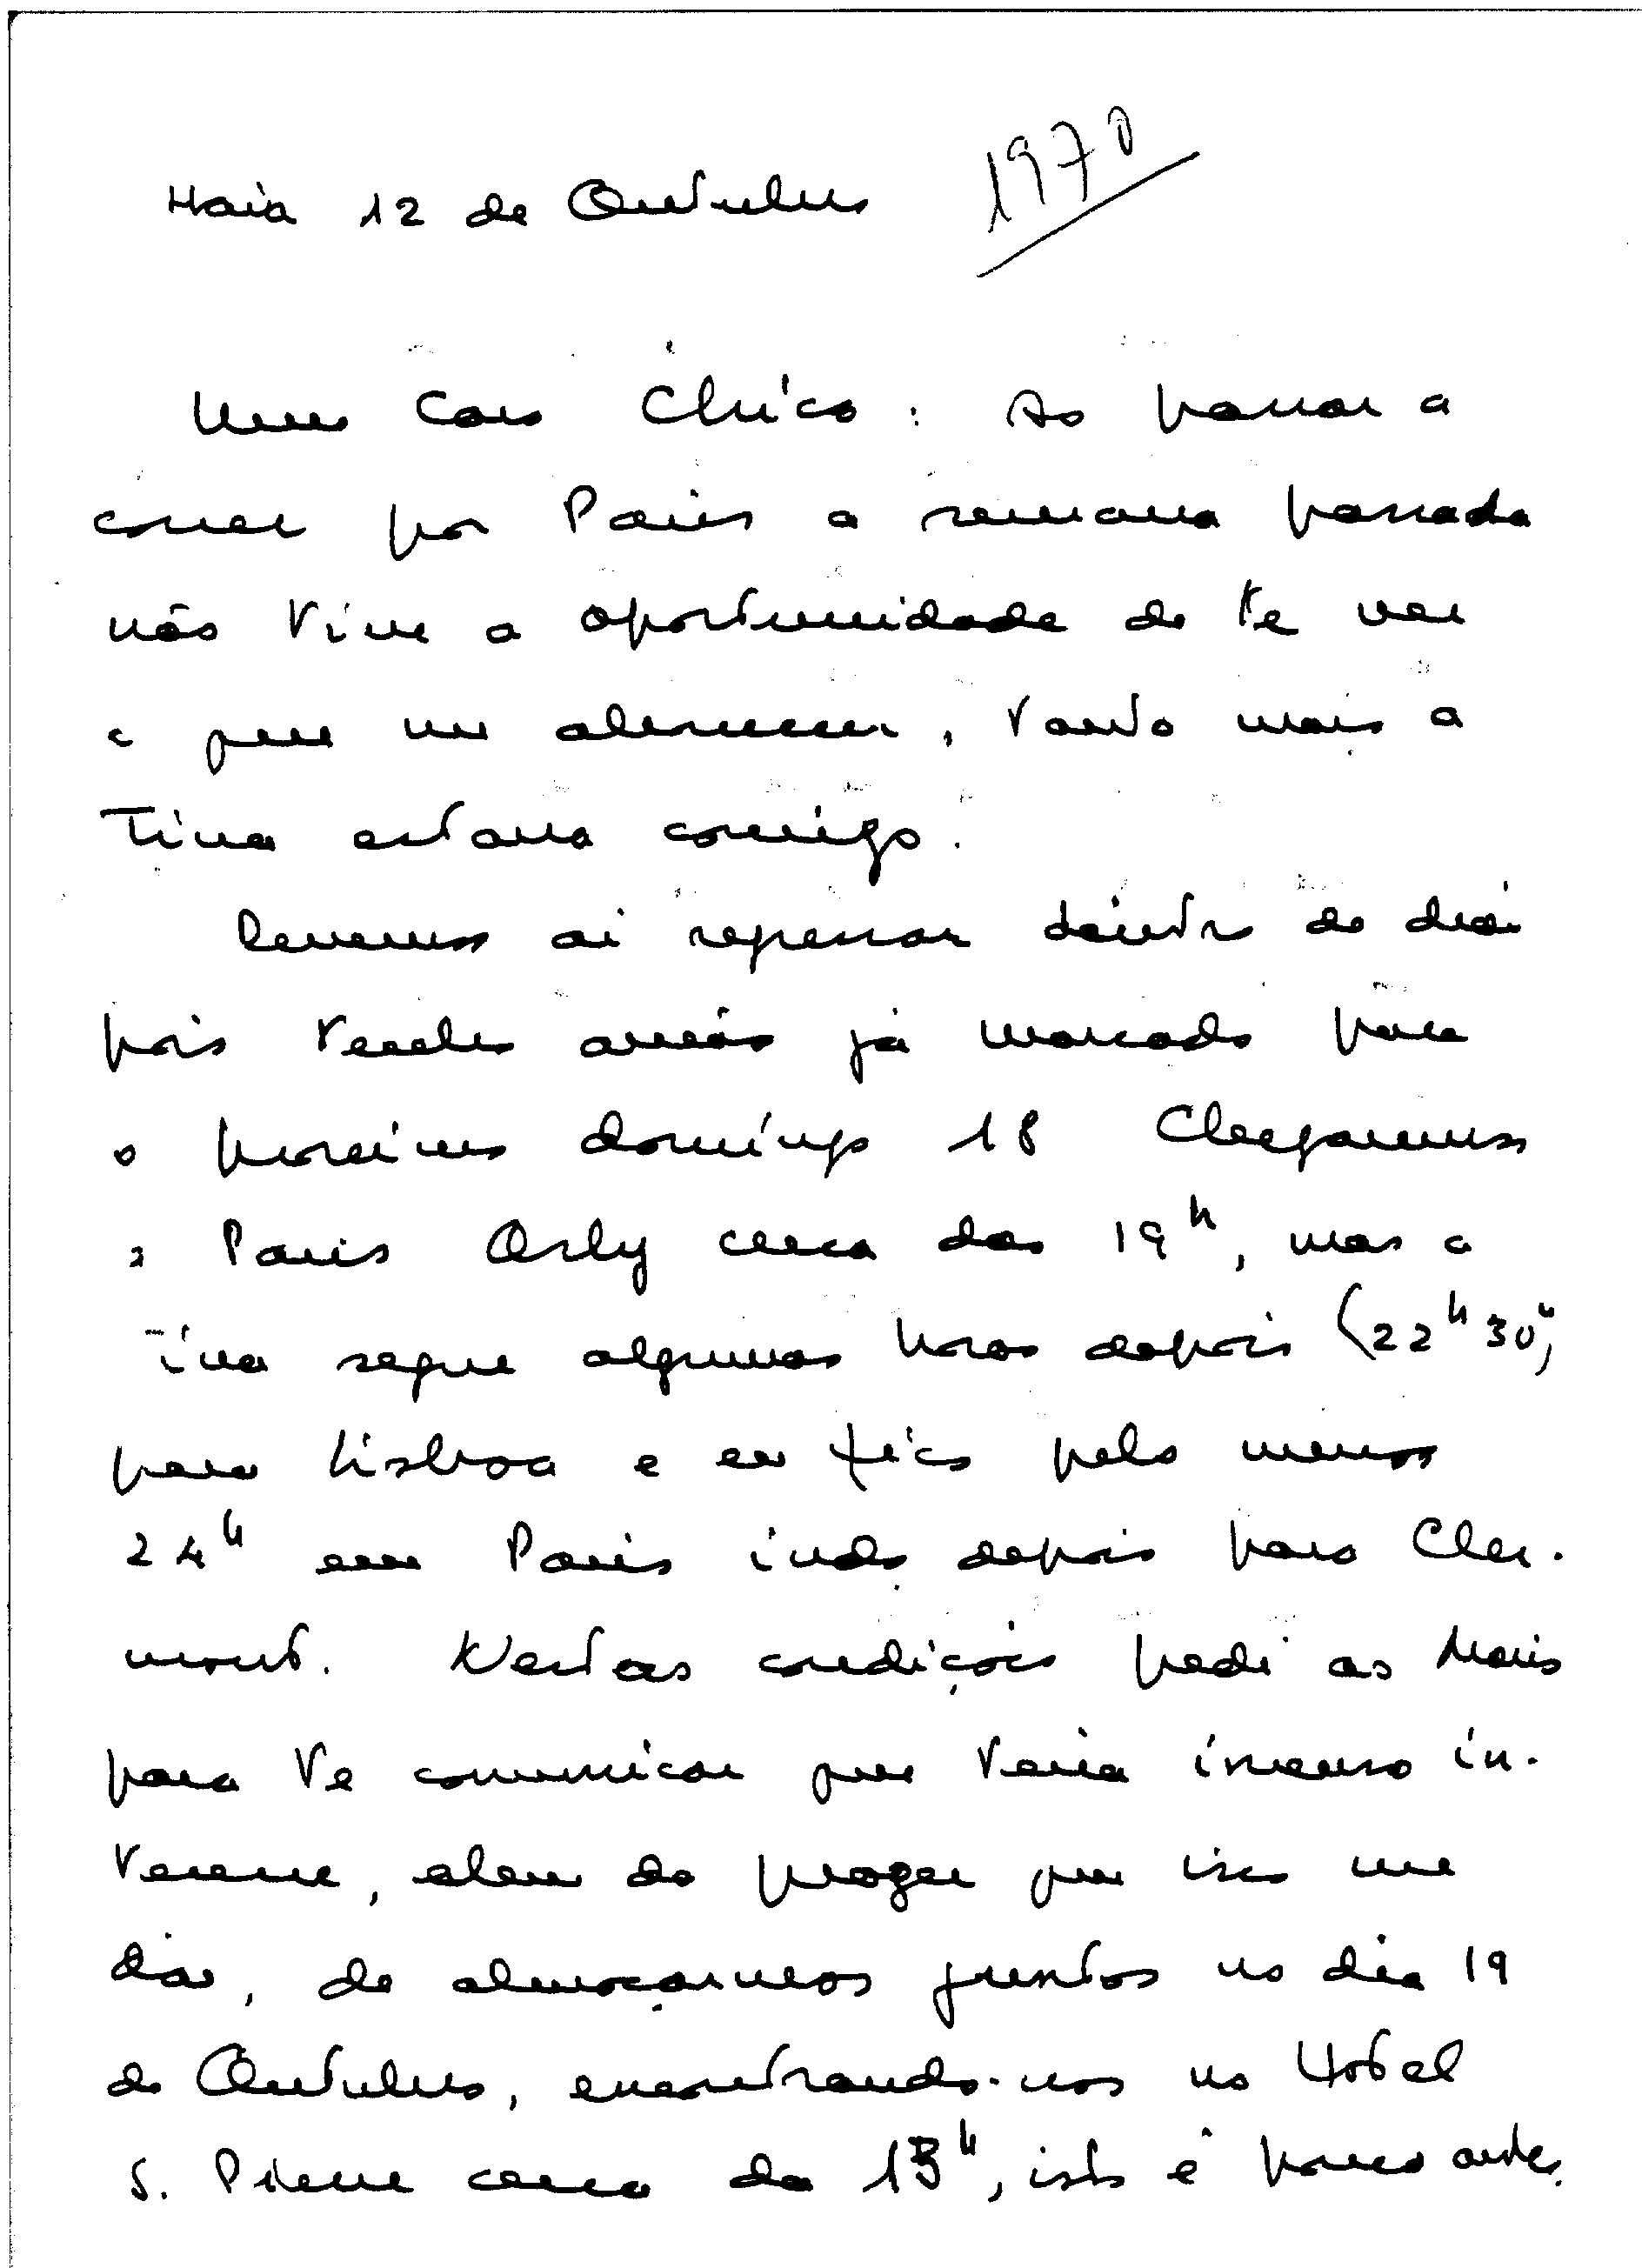 Haia 12 de Outubro 1970
Meu Caro Chico: Ao passar a
correr por Paris a semana passada
não tive a oportunidade de te ver
o que me aborreceu, tanto mais a
Tina estava comigo.
Devemos aí repassar dentro de dias
pois tenho avião já marcado para
o próximo domingo 18 Chegaremos
a Paris Orly cerca das 19h, mas a
Tina segue algumas horas depois (22h30)
para Lisboa e eu fico pelo menos
24h em Paris indo depois para Cler-
mont. Nestas condições pedi ao Mário
para te comunicar que teria imenso in-
teresse, além do prazer que isso me
dar, de almoçarmos juntos no dia 19
de Outubro, encontrando-nos no Hotel
S. Pierre cerca da 13h, isto é pouco antes